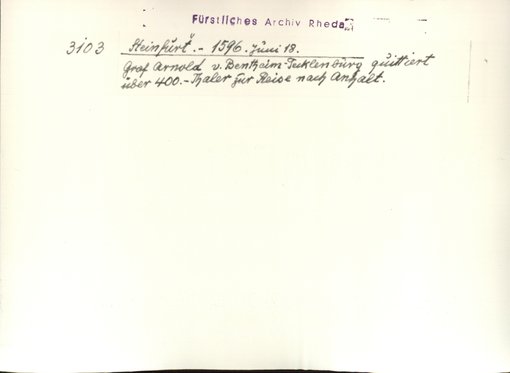 Fürstliches Archiv Rheda
3103 Steinfurt. - 1596. Juni 18.
Graf Arnold v. Bentheim-Tecklenburg quittiert
über 400.- Thaler zur Reise nach Anhalt.